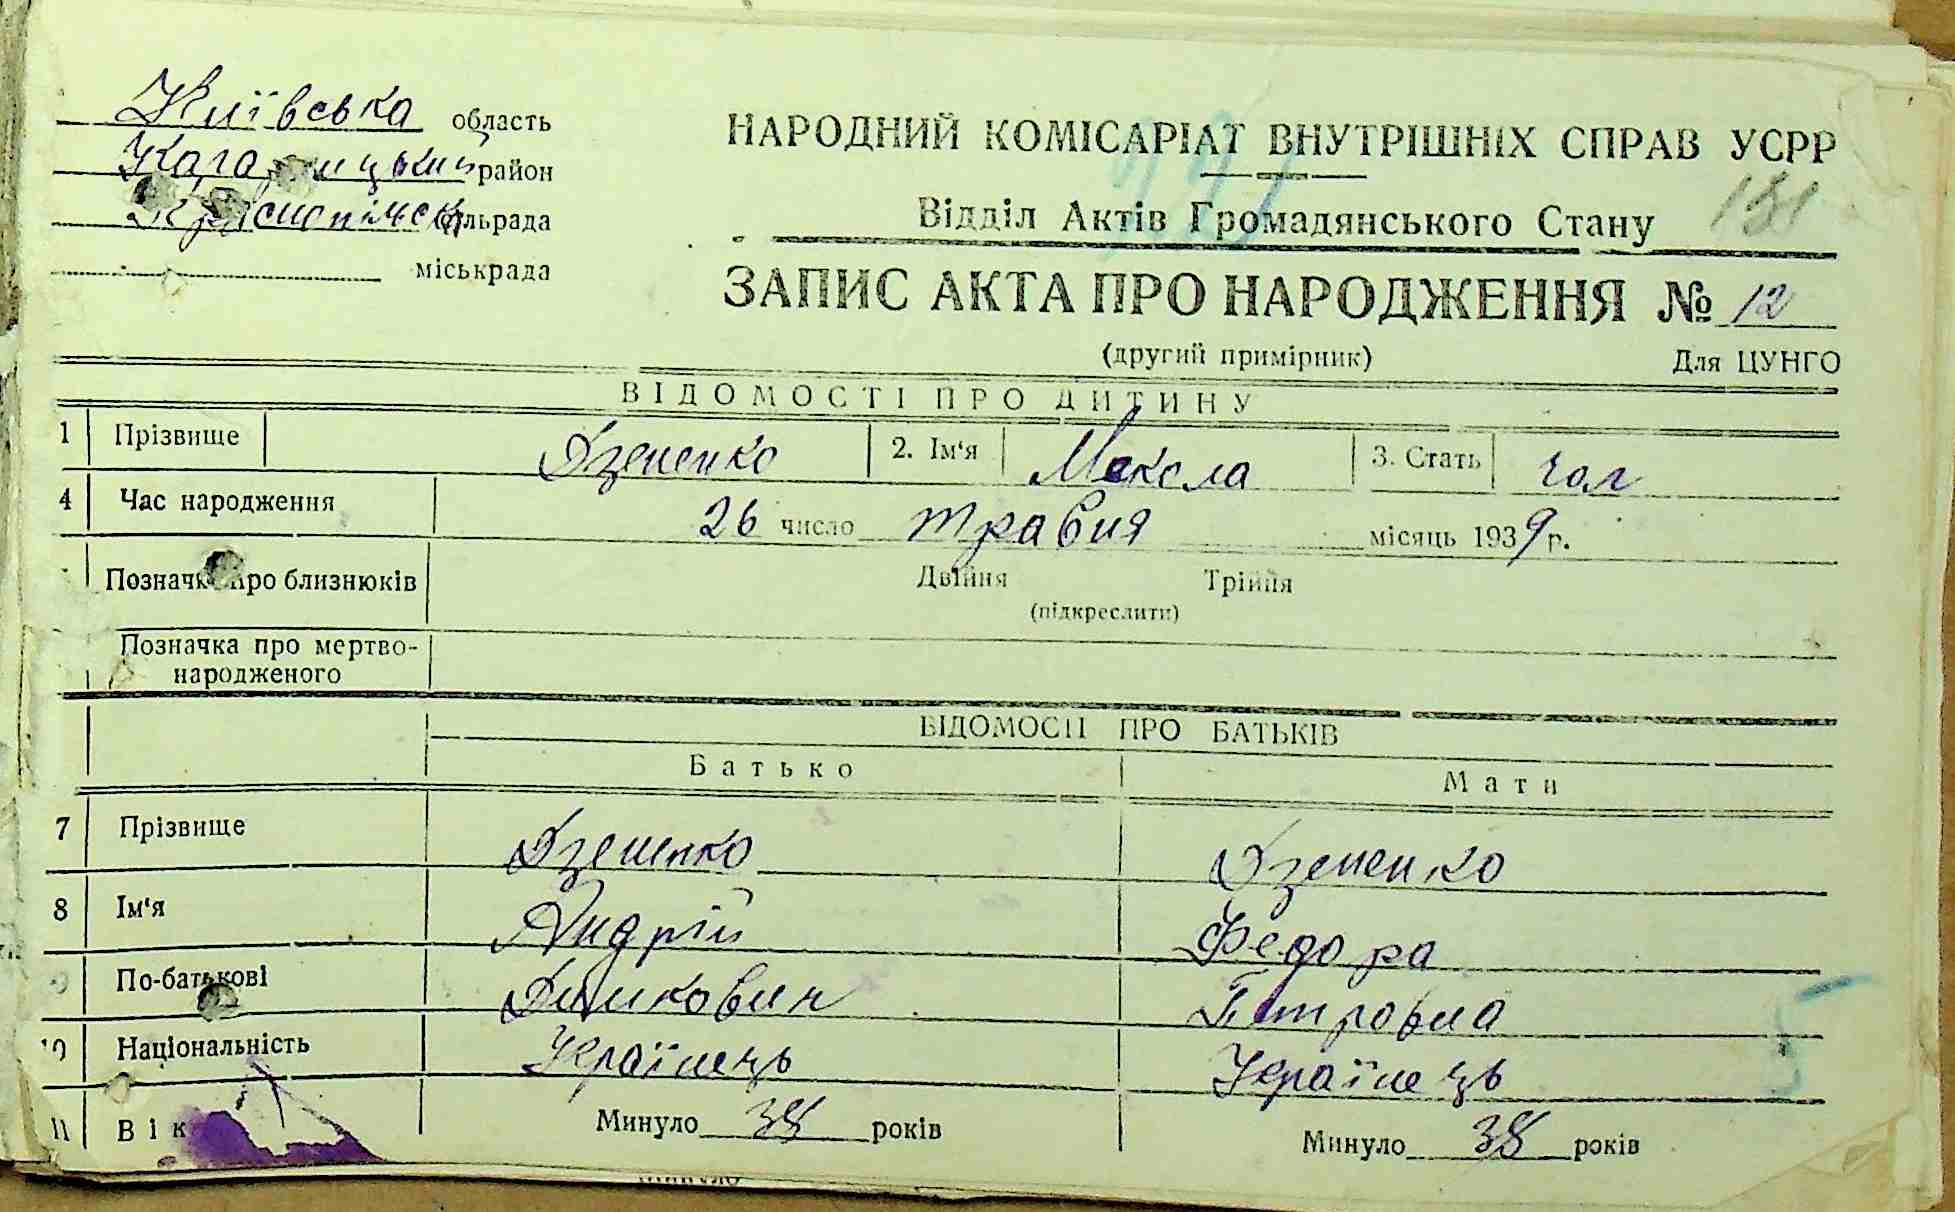 Київська область
район
сільрада
міськрада
НАРОДНИЙ КОМІСАРІАТ ВНУТРІШНІХ СПРАВ УСРР
Відділ Актів Громадянського Стану 131
ЗАПИС АКТА ПРО НАРОДЖЕННЯ № 12
(другий примірник) Для ЦУНГО
ВІДОМОСТІ ПРО ДИТИНУ
1 Прізвище Дзененко 2. Ім‘я Микола 3. Стать чол
4 Час народження 26 число травня місяць 1939 р.
Позначка про близнюків Двійня Трійня
(підкреслити)
Позначка про мертво-
народженого
ВІДОМОСТІ ПРО БАТЬКІВ
Батько Мати
7 Прізвище Дзененко Дзененко
8 Ім‘я Андрій Федора
9 По-батькові Петровна
10 Національність Українець Українець
11 Вік Минуло 38 років Минуло 38 років